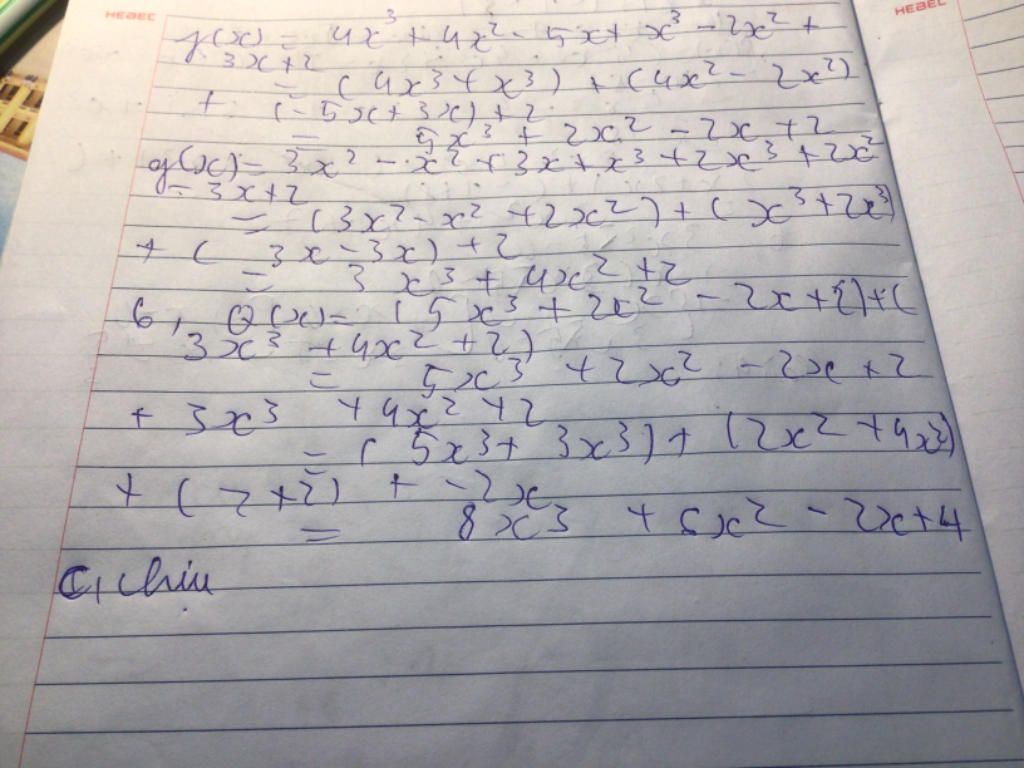 HEBEL
HEBEL
f(x) = 4x³ + 4x² - 5x + x³ - 2x² +
3x + 2
= (4x³ + x³) + (4x² - 2x²)
+ (-5x + 3x) + 2
= 5x³ + 2x² - 2x + 2
g(x) = 3x² - x² + 3x + x³ + 2x³ + 2x²
- 3x + 2
= (3x² - x² + 2x²) + (x³ + 2x³)
+ (3x - 3x) + 2
= 3x³ + 4x² + 2
b, Q(x) = (5x³ + 2x² - 2x + 2) + (
3x³ + 4x² + 2)
= 5x³ + 2x² - 2x + 2
+ 3x³ + 4x² + 2
= (5x³ + 3x³) + (2x² + 4x²)
+ (2 + 2) + -2x
= 8x³ + 6x² - 2x + 4
C, Chịu